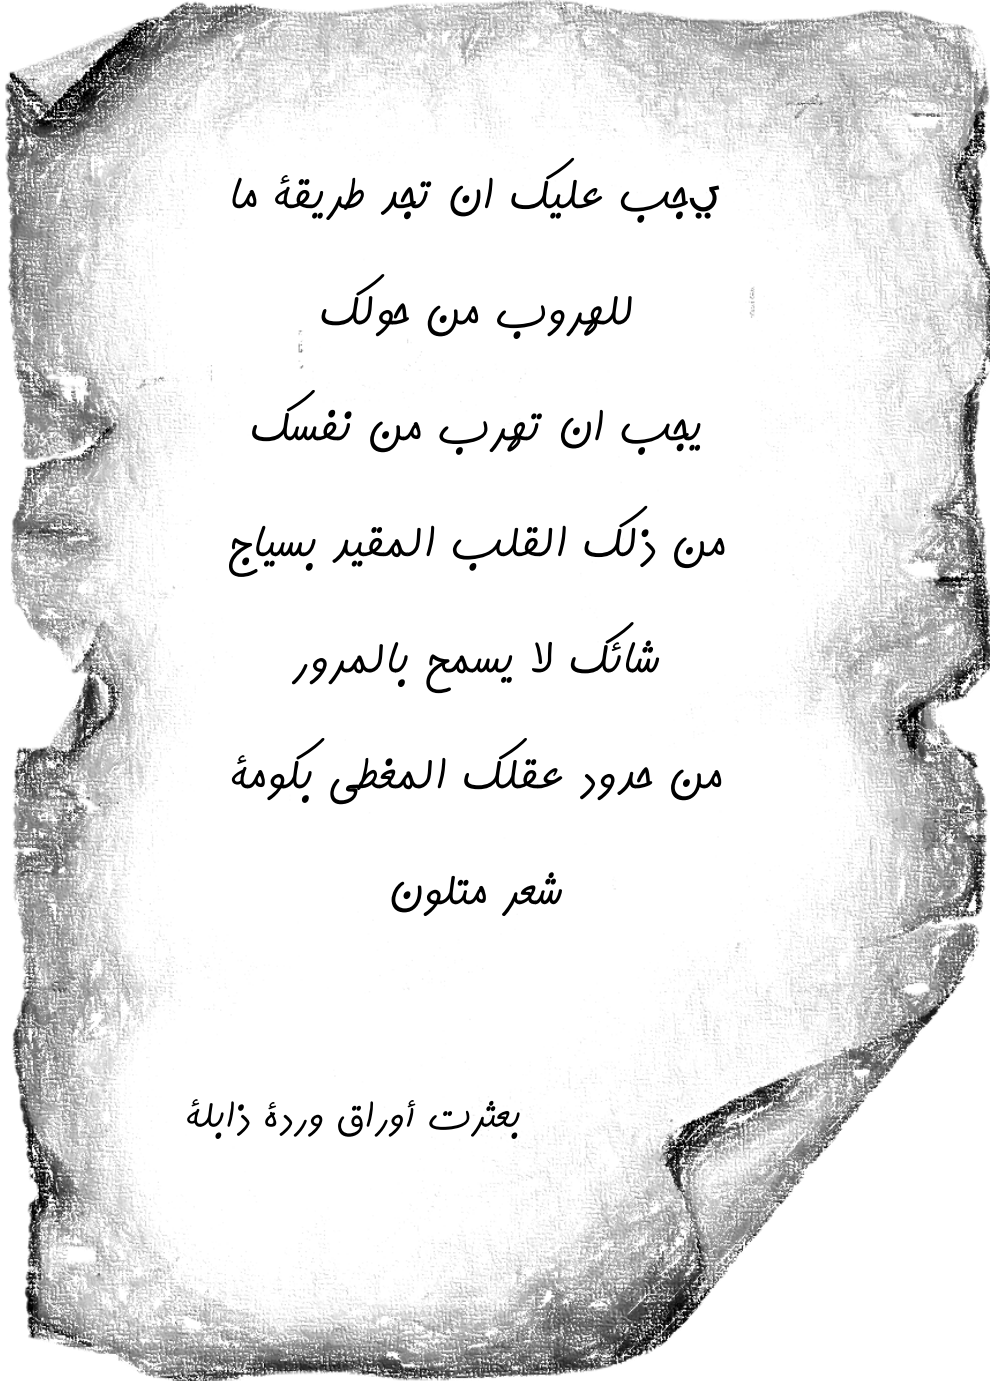 يجب عليك ان تجد طريقة ما
للهروب من حولك
يجب ان تهرب من نفسك
من ذلك القلب المقيد بسياج
شائك لا يسمح بالمرور
من حدود عقلك المغطى بكومة
شعر متلون
بعثرت أوراق وردة ذابلة